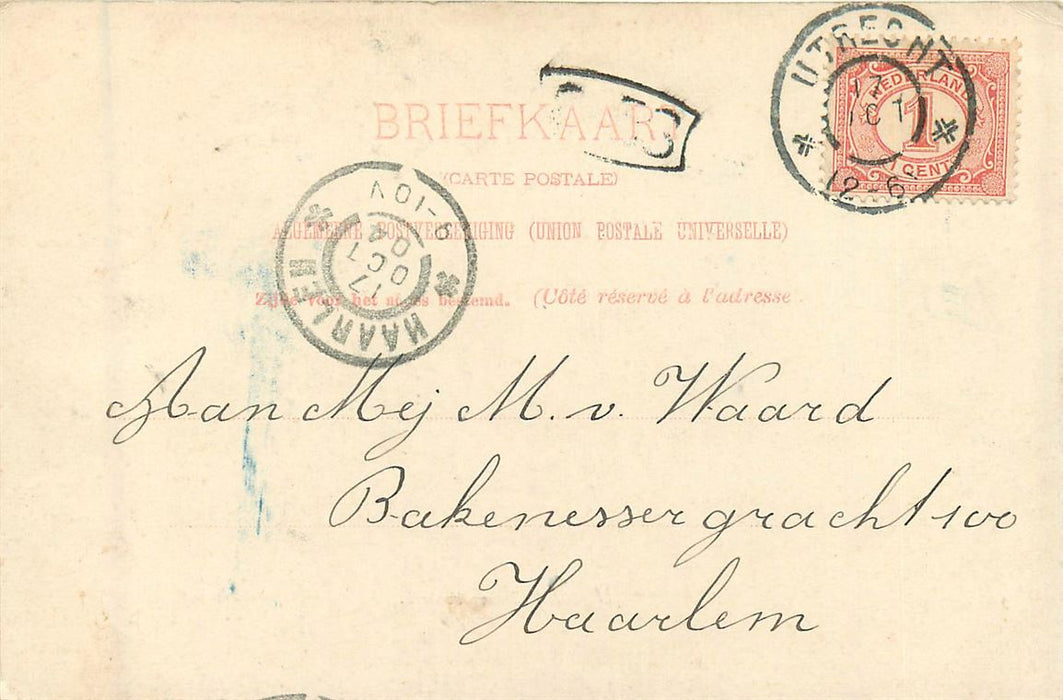 UTRECHT
17
12-6
NEDERLAND
1
1 CENT
BRIEFKAART
(CARTE POSTALE)
ALGEMEENE POSTVEREENIGING (UNION POSTALE UNIVERSELLE)
Zijde voor het adres bestemd. (Côté réservé à l'adresse
HAARLEM
17
OCT
04
9-10V
Aan Mej M. v. Waard
Bakenesser gracht 100
Haarlem